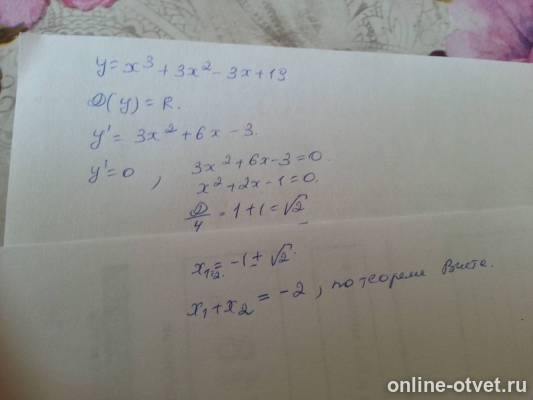 y = x³ + 3x² - 3x + 13
D(y) = R.
y' = 3x² + 6x - 3.
y' = 0 , 3x² + 6x - 3 = 0.
x² + 2x - 1 = 0.
D/4 = 1 + 1 = √2
x₁,₂ = -1 ± √2.
x₁ + x₂ = -2 , по теореме Виета.
online-otvet.ru